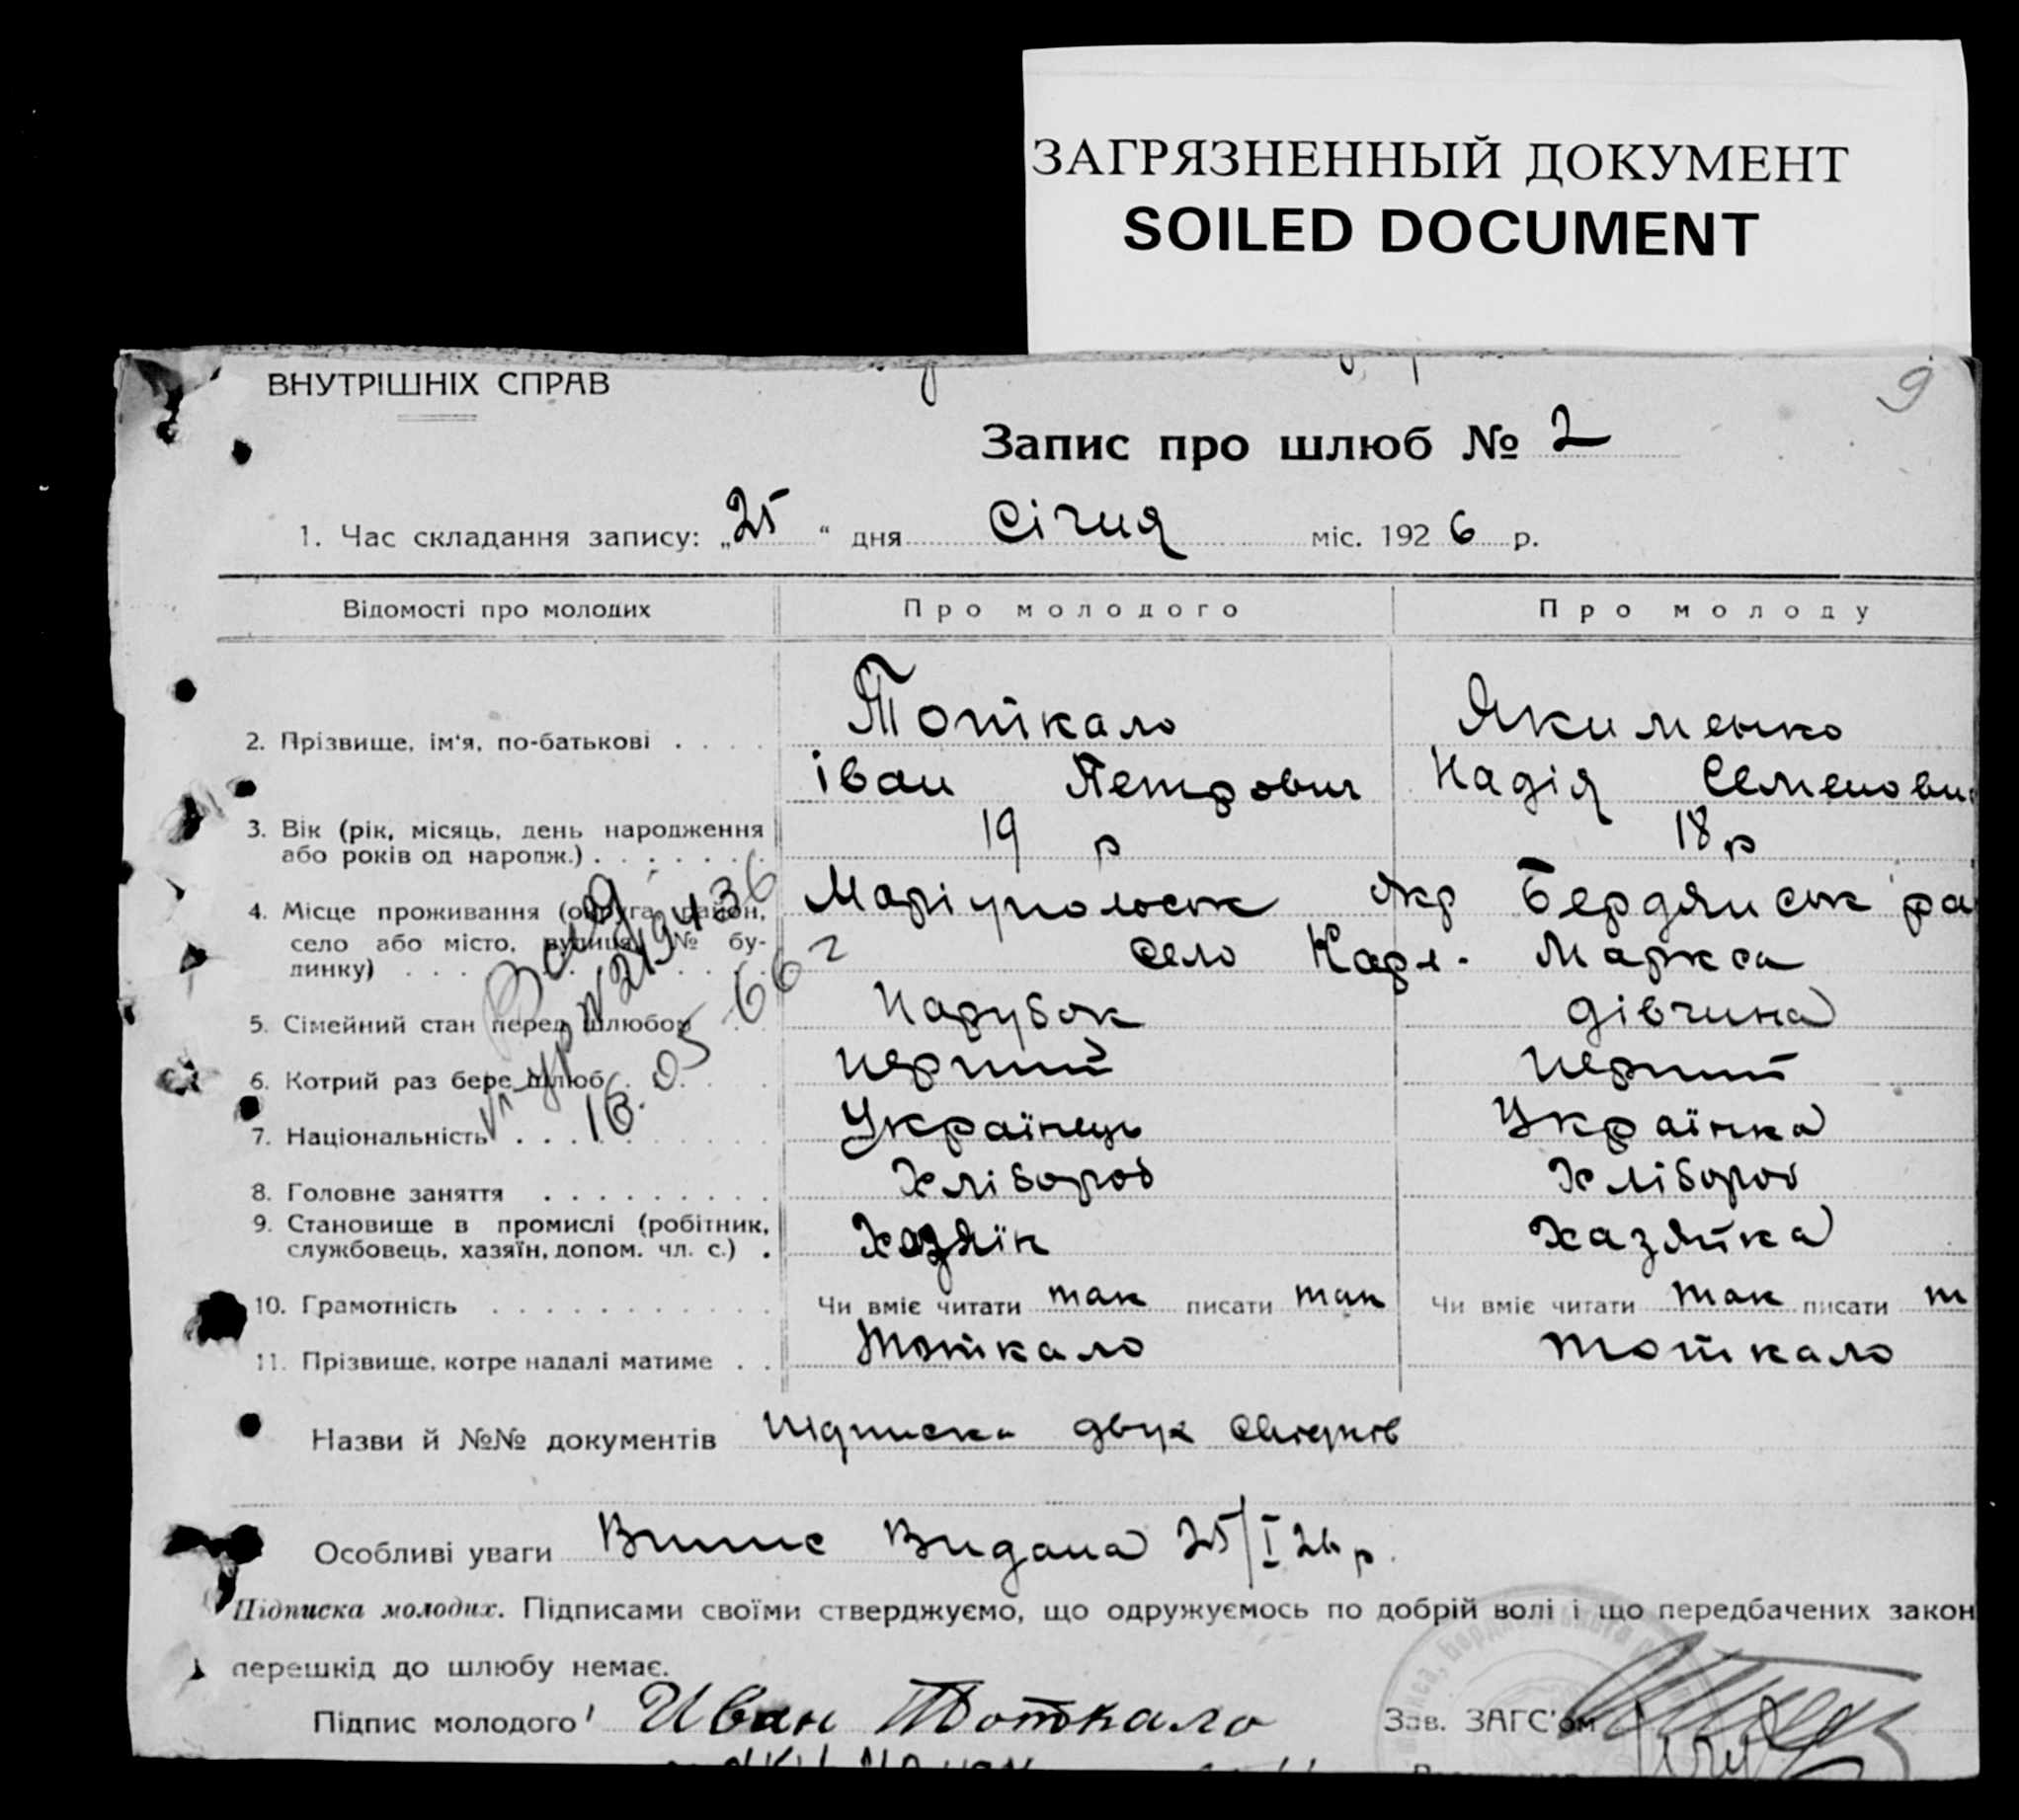 ЗАГРЯЗНЕННЫЙ ДОКУМЕНТ
SOILED DOCUMENT
ВНУТРІШНІХ СПРАВ
9
Запис про шлюб № 2
1. Час складання запису: „25“ дня Січня міс. 1926 р.
Відомості про молодих Про молодого Про молоду
2. Прізвище, ім'я, по-батькові . . . . Тоткало Якименко
Іван Петрович Надія Семенови
3. Вік (рік, місяць, день народження або років од народж.) . . . . . . . 19 р 18 р
4. Місце проживання (округа, район, село або місто, вулиця, № будинку) . . . Маріупольськ окр Бердянськ ра
село Карл. Маркса
5. Сімейний стан перед шлюбом . . Парубок дівчина
6. Котрий раз бере шлюб . . . . перший перший
7. Національність . . . . . . . . . . Українець Українка
8. Головне заняття . . . . . . . . . Хлібороб Хлібороб
9. Становище в промислі (робітник, службовець, хазяїн, допом. чл. с.) . Хазяїн Хазяйка
10. Грамотність . . . . . . . . . . . Чи вміє читати так писати так Чи вміє читати так писати т
11. Прізвище, котре надалі матиме . . Тоткало Тоткало
16.05 66 г
Назви й №№ документів Підписка двух свідків
Особливі уваги Випис Видана 25/I 26 р.
Підписка молодих. Підписами своїми стверджуємо, що одружуємось по добрій волі і що передбачених закон
перешкід до шлюбу немає.
Підпис молодого Иван Тоткало Зав. ЗАГС'ом